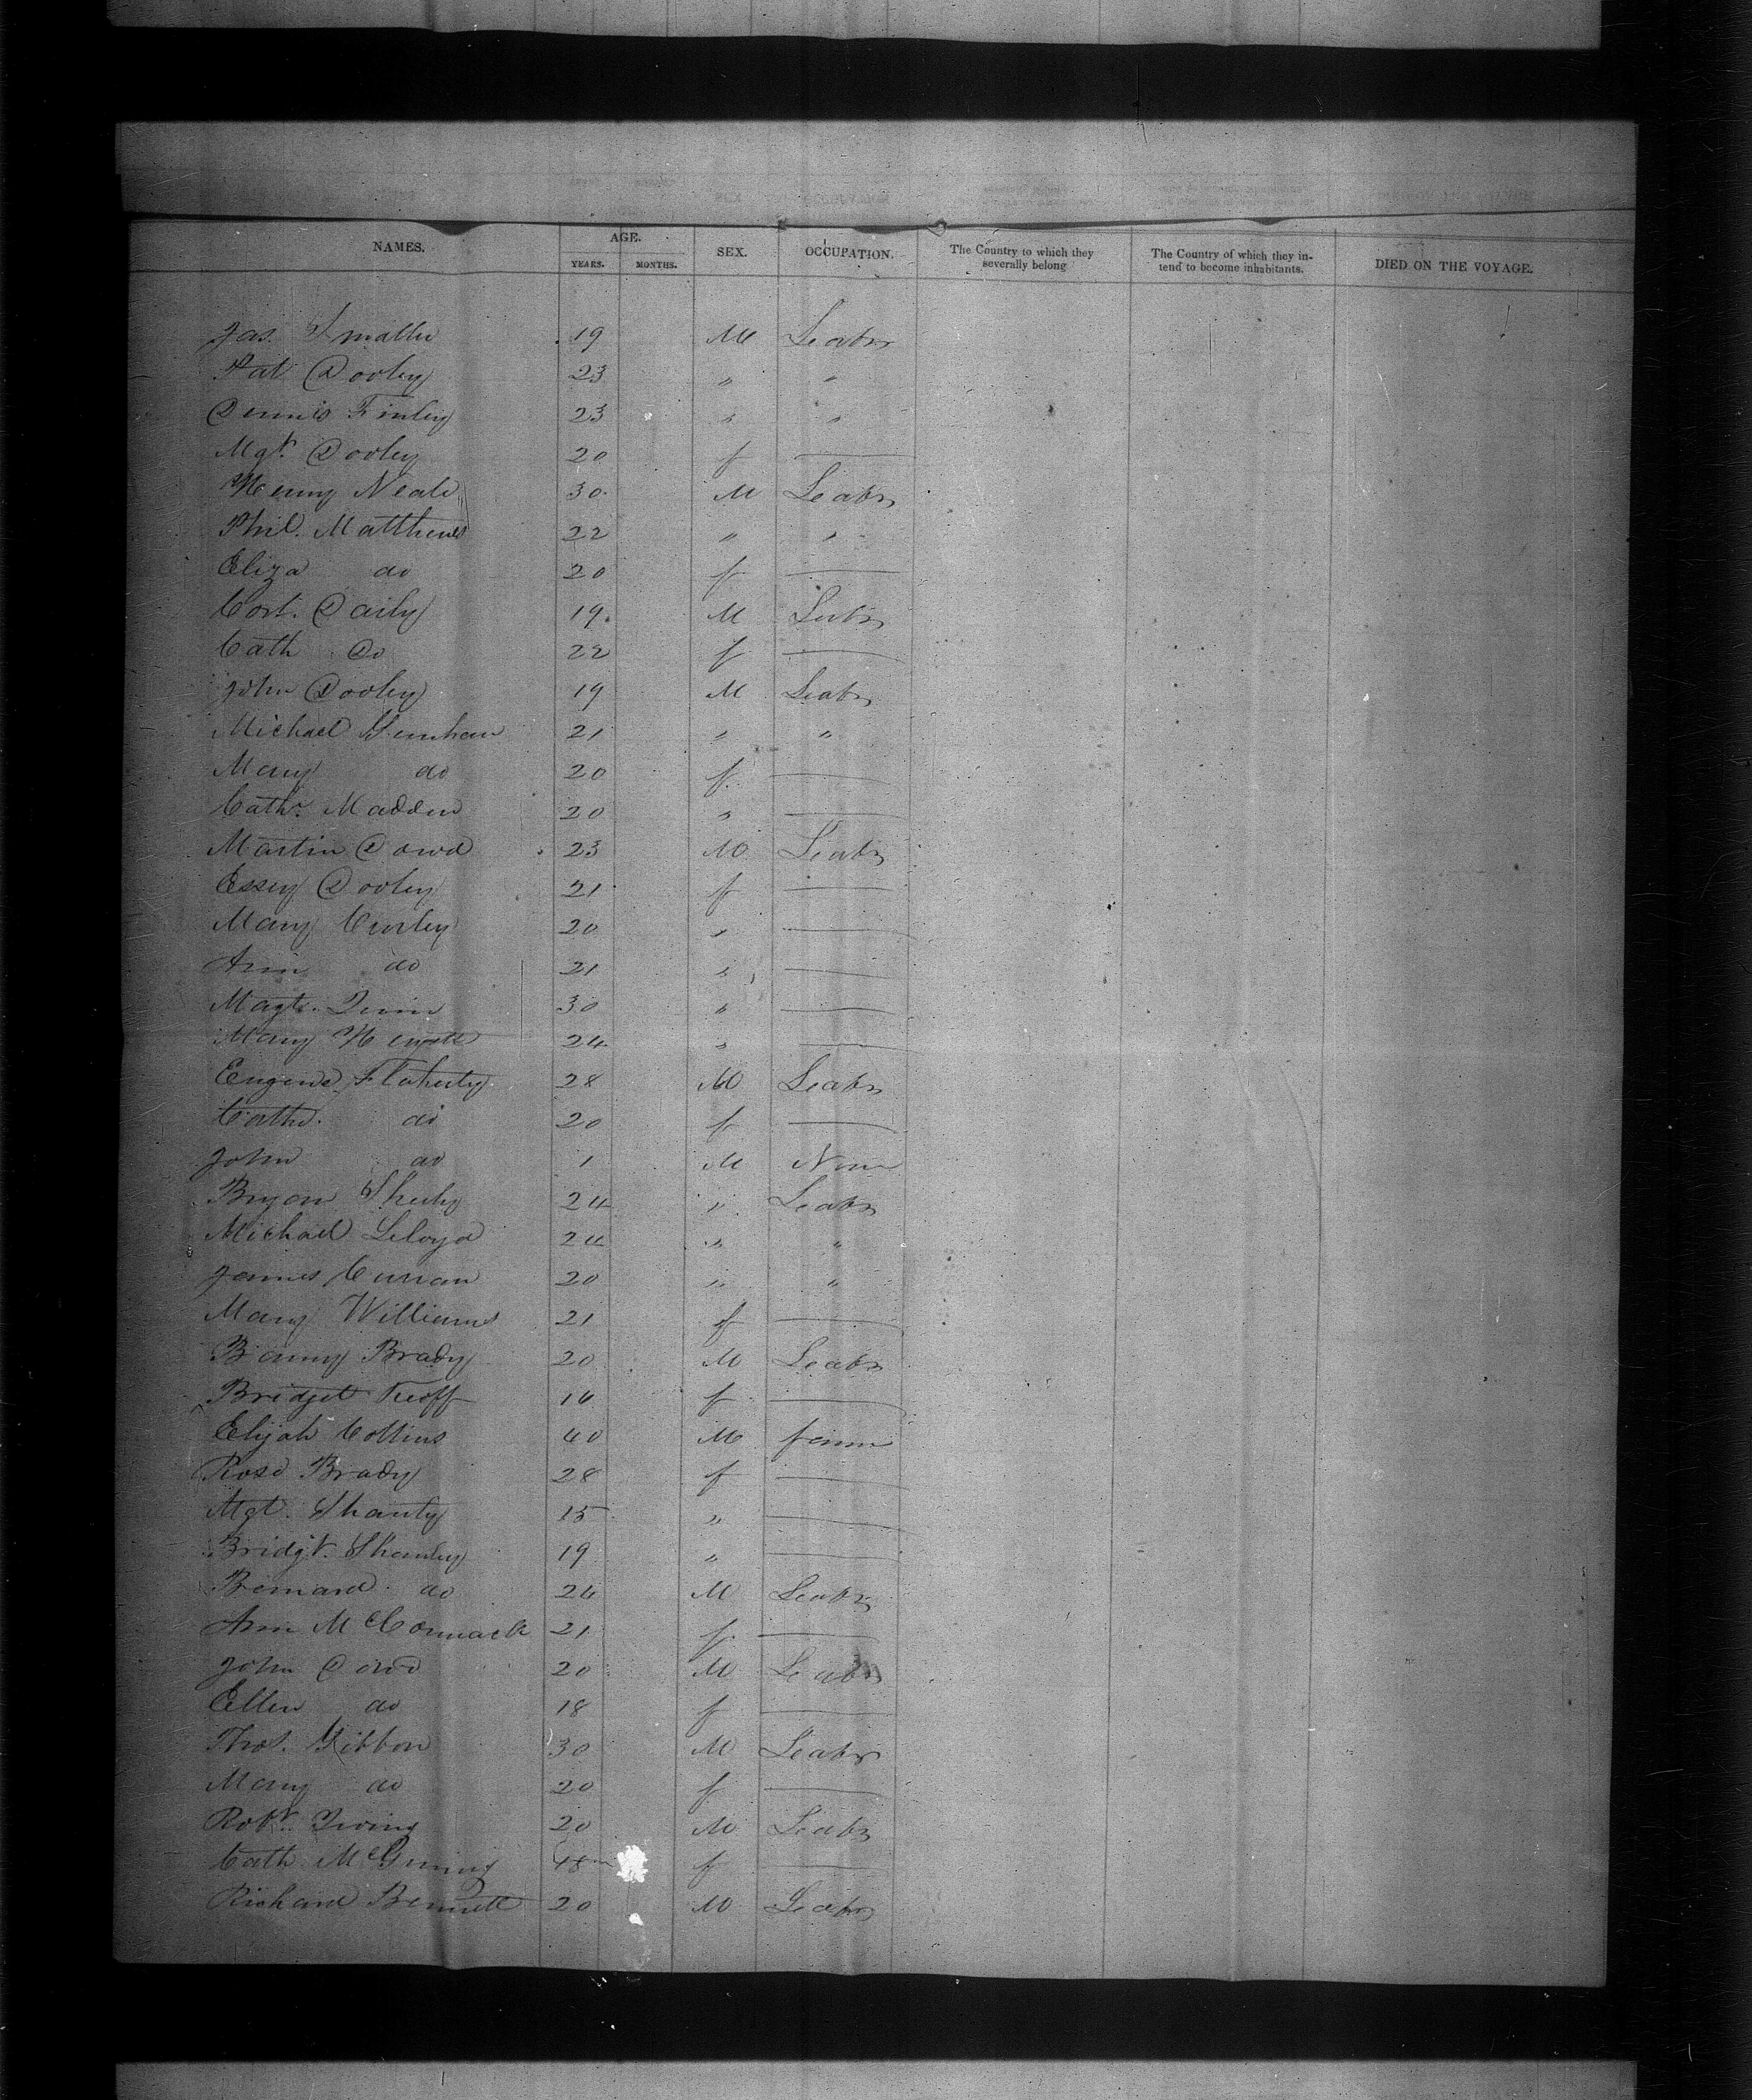 NAMES. AGE. SEX. OCCUPATION. The Country to which they severally belong The Country of which they intend to become inhabitants. DIED ON THE VOYAGE.
YEARS. MONTHS.
Jas. 19 M Leabr
Pat Dooley 23 " "
Dennis Finley 23 " "
Mgt. Dooley 20 f —
Henny Neale 30 M Leabr
Phil. Matthews 22 " "
Eliza do 20 f —
Daily 19 M Leabr
Cath Do 22 f —
John Dooley 19 M Leabr
Michael 21 " "
Mary do 20 f —
Cathe. Madden 20 " —
Martin Dowd 23 M Leabr
Essey Dooley 21 f —
Mary Curley 20 " —
Ann do 21 " —
Magt. 30 " —
Mary 24 " —
Eugene Flaherty 28 M Leabr
Cathe. do 20 f —
John do 1 M None
Bryan Sheehy 24 " Leabr
Michael Lloyd 24 " "
James Curran 20 " "
Mary Williams 21 f —
Barny Brady 20 M Leabr
Bridget Keoff 16 f —
Elijah Collins 40 M farmr
Rose Brady 28 f —
Mgt. Shanty 15 " —
Bridgt. Shanley 19 " —
Bernard do 24 M Leabr
Ann McCormack 21 f —
John Dowd 20 M Leabr
Ellen do 18 f —
Thos. Gibbon 30 M Leabr
Mary do 20 f —
Robt. Irving 20 M Leabr
Cath 18 f —
Richard Bennett 20 M Leabr